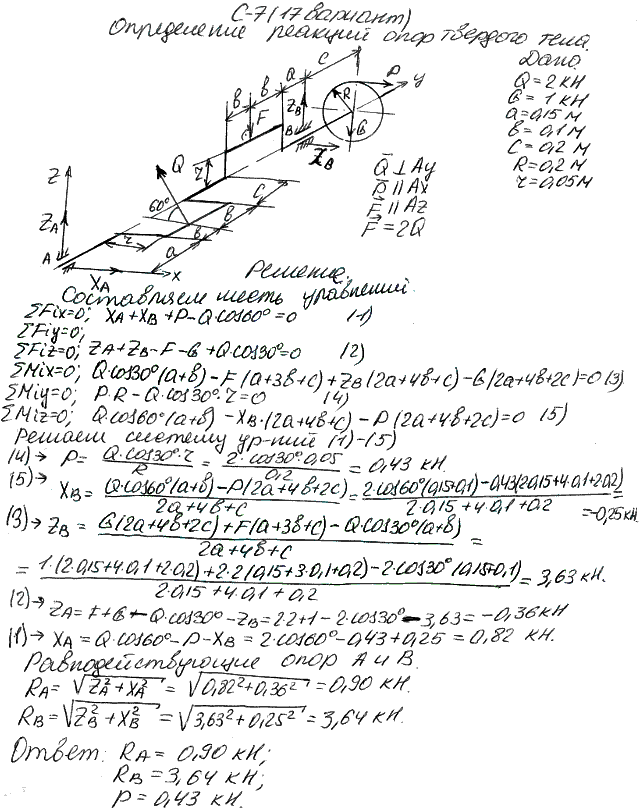 С-7 (17 вариант)
Определение реакций опор твердого тела.
Дано
Q = 2 кН
G = 1 кН
a = 0,15 м
b = 0,1 м
c = 0,2 м
R = 0,2 м
r = 0,05 м
Q̄ ⊥ Ay
P̄ ∥ Ax
F̄ ∥ Az
F̄ = 2Q
z
Z_A
A
X_A
x
Q
60°
r
r
a
b
b
c
b
b
a
c
F
Z_B
B
X̄_B
R
G
P
y
Решение.
Составляем шесть уравнений.
ΣFix=0; X_A + X_B + P - Q·cos60° = 0 (1)
ΣFiy=0;
ΣFiz=0; Z_A + Z_B - F - G + Q·cos30° = 0 (2)
ΣMix=0; Q·cos30°(a+b) - F(a+3b+c) + Z_B(2a+4b+c) - G(2a+4b+2c) = 0 (3)
ΣMiy=0; P·R - Q·cos30°·r = 0 (4)
ΣMiz=0; Q·cos60°(a+b) - X_B·(2a+4b+c) - P(2a+4b+2c) = 0 (5)
Решаем систему ур-ний (1)-(5)
(4)→ P = Q·cos30°·r / R = 2·cos30°·0,05 / 0,2 = 0,43 кН.
(5)→ X_B = (Q·cos60°(a+b) - P(2a+4b+2c)) / (2a+4b+c) = (2·cos60°(0,15+0,1) - 0,43(2·0,15+4·0,1+2·0,2)) / (2·0,15+4·0,1+0,2) = -0,25 кН.
(3)→ Z_B = (G(2a+4b+2c) + F(a+3b+c) - Q·cos30°(a+b)) / (2a+4b+c) =
= (1·(2·0,15+4·0,1+2·0,2) + 2·2(0,15+3·0,1+0,2) - 2·cos30°(0,15+0,1)) / (2·0,15+4·0,1+0,2) = 3,63 кН.
(2)→ Z_A = F + G - Q·cos30° - Z_B = 2·2+1-2·cos30° - 3,63 = -0,36 кН
(1)→ X_A = Q·cos60° - P - X_B = 2·cos60° - 0,43 + 0,25 = 0,82 кН.
Равнодействующие опор А и В.
R_A = √(Z_A² + X_A²) = √(0,82² + 0,36²) = 0,90 кН.
R_B = √(Z_B² + X_B²) = √(3,63² + 0,25²) = 3,64 кН.
Ответ: R_A = 0,90 кН;
R_B = 3,64 кН;
P = 0,43 кН.